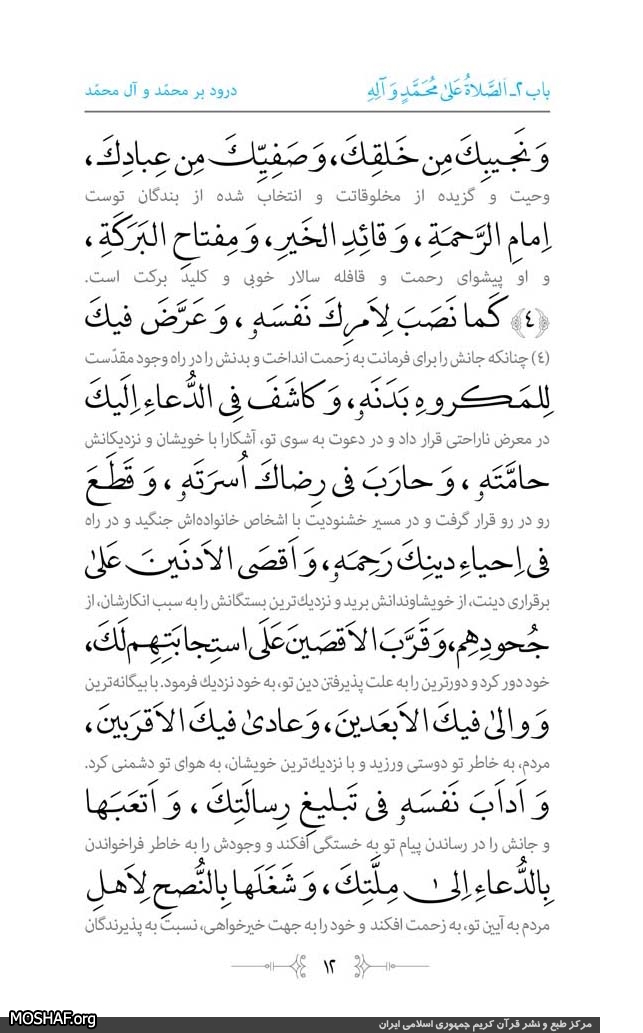 باب ۲ـ اَلصَّلاةُ عَلىٰ مُحَمَّدٍ وَ آلِهِ
درود بر محمّد و آل محمّد
وَ نَجيبِكَ مِن خَلقِكَ، وَ صَفِيِّكَ مِن عِبادِكَ،
وحیت و گزیده از مخلوقاتت و انتخاب شده از بندگان توست
اِمامِ الرَّحمَةِ، وَ قائِدِ الخَيرِ، وَ مِفتاحِ البَرَكَةِ،
و او پیشوای رحمت و قافله سالار خوبی و کلید برکت است.
﴿٤﴾ كَما نَصَبَ لِاَمرِكَ نَفسَهٖ، وَ عَرَّضَ فيكَ
(٤) چنانکه جانش را برای فرمانت به زحمت انداخت و بدنش را در راه وجود مقدّست
لِلمَكروهِ بَدَنَهٖ، وَ كاشَفَ فِى الدُّعاءِ اِلَيكَ
در معرض ناراحتی قرار داد و در دعوت به سوی تو، آشکارا با خویشان و نزدیکانش
حامَّتَهٖ، وَ حارَبَ فى رِضاكَ اُسرَتَهٖ، وَ قَطَعَ
رو در رو قرار گرفت و در مسیر خشنودیت با اشخاص خانواده‌اش جنگید و در راه
فى اِحياءِ دينِكَ رَحِمَهٖ، وَ اَقصَى الاَدنَينَ عَلىٰ
برقراری دینت، از خویشاوندانش برید و نزدیک‌ترین بستگانش را به سبب انکارشان، از
جُحودِهِم، وَ قَرَّبَ الاَقصَينَ عَلَى استِجابَتِهِم لَكَ،
خود دور کرد و دورترین را به علت پذیرفتن دین تو، به خود نزدیک فرمود. با بیگانه‌ترین
وَ والىٰ فيكَ الاَبعَدينَ، وَ عادىٰ فيكَ الاَقرَبينَ،
مردم، به خاطر تو دوستی ورزید و با نزدیک‌ترین خویشان، به هوای تو دشمنی کرد.
وَ اَداَبَ نَفسَهٖ فى تَبليغِ رِسالَتِكَ، وَ اَتعَبَها
و جانش را در رساندن پیام تو به خستگی افکند و وجودش را به خاطر فراخواندن
بِالدُّعاءِ اِلىٰ مِلَّتِكَ، وَ شَغَلَها بِالنُّصحِ لِاَهلِ
مردم به آیین تو، به زحمت افکند و خود را به جهت خیرخواهی، نسبت به پذیرندگان
۱۲
مرکز طبع و نشر قرآن کریم جمهوری اسلامی ایران
MOSHAF.org